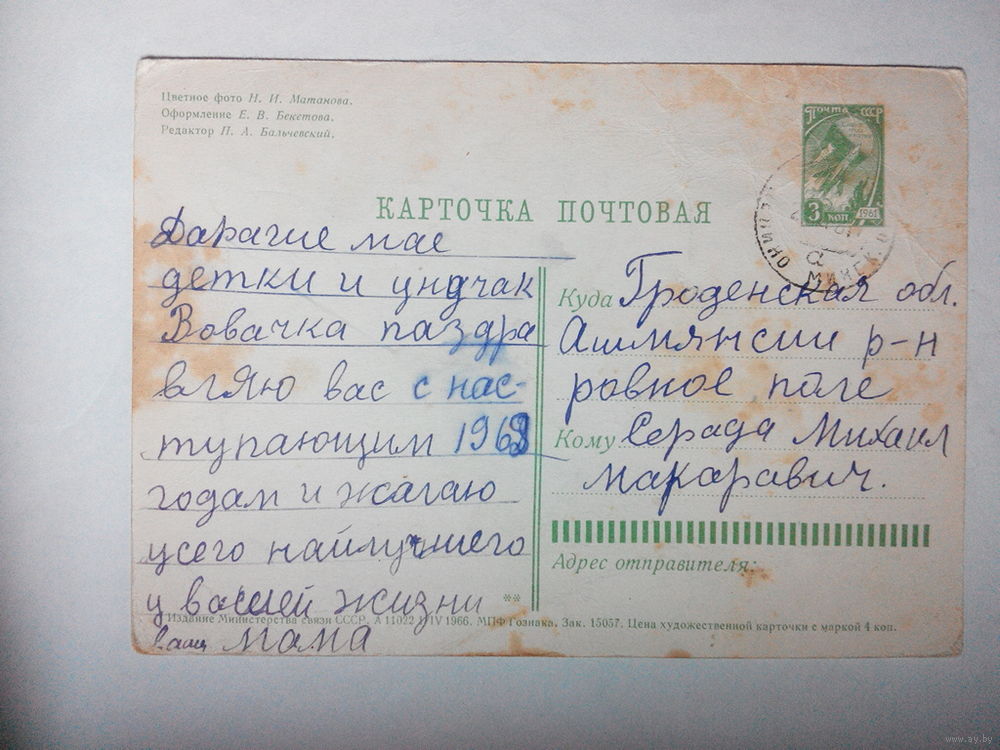 Цветное фото Н. И. Матанова.
Оформление Е. В. Бекетова.
Редактор П. А. Бальчевский.
почта СССР
3 коп
1961
КАРТОЧКА ПОЧТОВАЯ
Дарагие мае
детки и унучак
Вовачка паздра
вляю вас с нас-
тупающим 1968
годам и жалаю
усего найлучшего
у вашей жизни
ваш мама
Куда Гроденская обл.
Ашмянски р-н
ровное поле
Кому Серада Михаил
Макаравич.
Адрес отправителя:
**
Издание Министерства связи СССР. А 11022 IV 1966. МПФ Гознака. Зак. 15057. Цена художественной карточки с маркой 4 коп.
www.ay.by